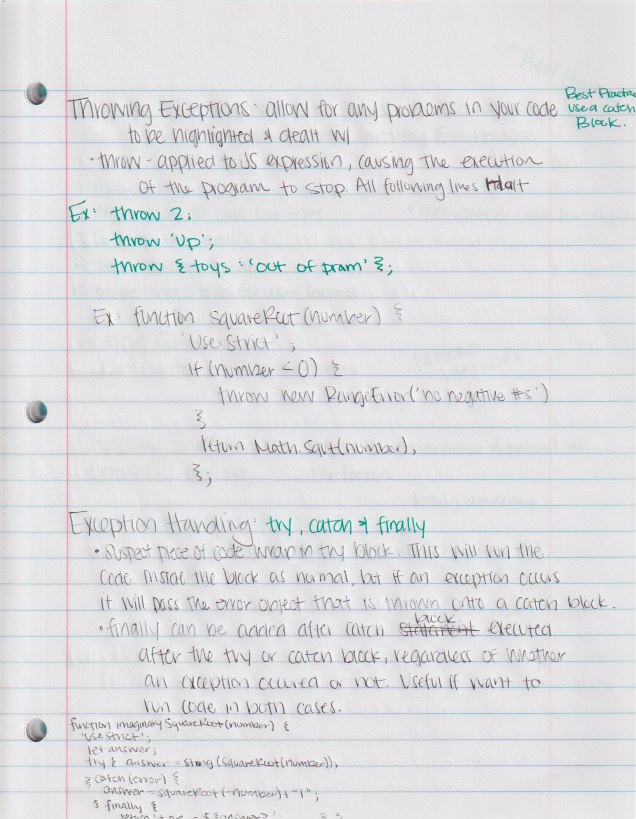 Throwing Exceptions: allow for any problems in your code
Best Practice
use a catch
Block.
to be highlighted & dealt w/
• throw - applied to JS expression, causing the execution
of the program to stop. All following lines halt
Ex: throw 2;
throw 'up';
throw { toys : 'out of pram' };
Ex: function squareRoot(number) {
'use strict';
if (number < 0) {
throw new RangeError('no negative #s')
}
return Math.sqrt(number);
};
Exception Handling: try, catch & finally
• suspect piece of code wrap in try block. This will run the
code inside the block as normal, but if an exception occurs
it will pass the error object that is thrown onto a catch block.
• finally can be added after catch block executed
after the try or catch block, regardless of whether
an exception occured or not. Useful if want to
run code in both cases.
function imaginarySquareRoot(number) {
'use strict';
let answer;
try { answer = string (squareRoot(number));
} catch (error) {
answer = squareRoot(-number) + "i";
} finally {
return